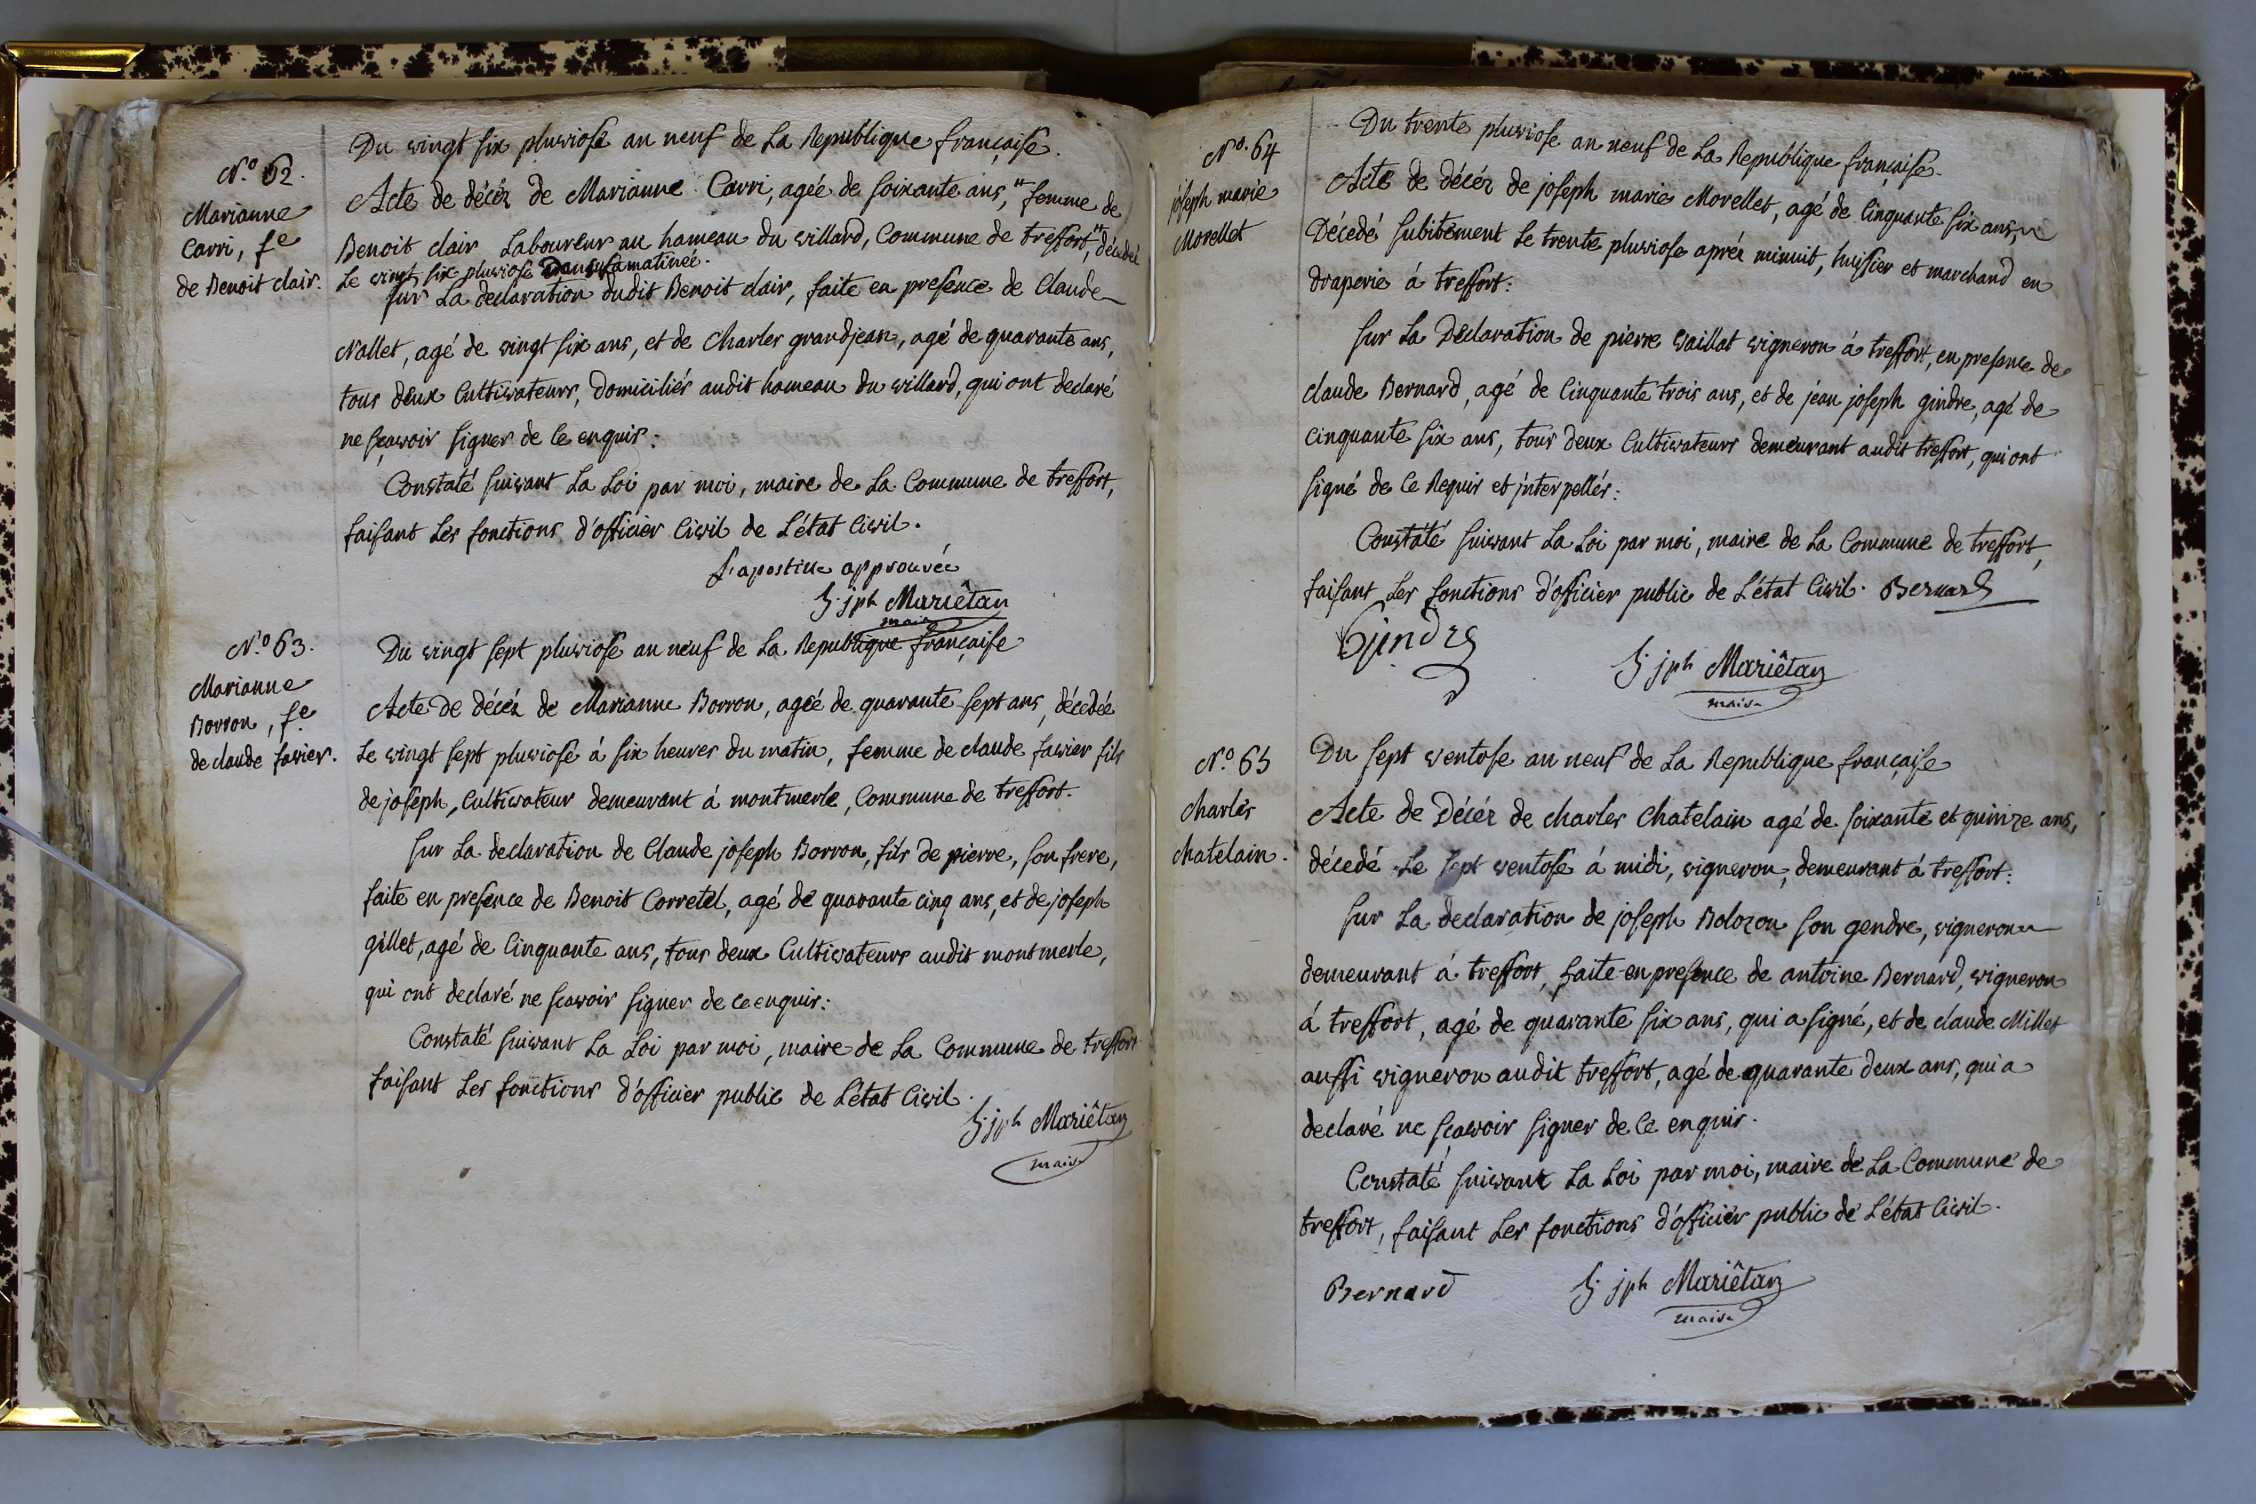 Du vingt six pluviose an neuf de La Republique française.
N.º 62.
Marianne
Carri, fe
de Benoit clair.
Acte de décés de Marianne Carri, agée de soixante ans, " femme de
Benoit clair Laboureur au hameau du villard, Commune de treffort", décédée
Le vingt six pluviose dans la matinée.
sur La declaration dudit Benoit clair, faite en presence de Claude
Nallet, agé de vingt six ans, et de Charles grandjean, agé de quarante ans,
tous deux Cultivateurs, Domiciliés audit hameau du villard, qui ont declaré
ne sçavoir signer de ce enquis :
Constaté suivant La Loi par moi, maire de La Commune de treffort,
faisant Les fonctions d'officier Civil de L'état Civil.
L'apostille approuvée
jph Mariêtan
maire
N.º 63.
Marianne
Borron, fe
de claude favier.
Du vingt sept pluviose an neuf de La Republique française
Acte De décés de Marianne Borron, agée de quarante sept ans, décédée
Le vingt sept pluviose á six heures du matin, femme de claude favier fils
de joseph, Cultivateur demeurant á montmerle, Commune de treffort.
sur La declaration de Claude joseph Borron, fils de pierre, son frere,
faite en presence de Benoit Corretel, agé de quarante cinq ans, et de joseph
gillet, agé de Cinquante ans, tous deux Cultivateurs audit montmerle,
qui ont declaré ne scavoir signer de ce enquis :
Constaté suivant La Loi par moi, maire de La Commune de treffort
faisant Les fonctions d'officier public de L'état Civil.
jph Mariêtan
maire
Du trente pluviose an neuf de La Republique française.
Nº. 64
joseph marie
Morellet
Acte de décés de joseph marie Morellet, agé de Cinquante six ans,
Décedé subitement Le trente pluviose aprés minuit, huissier et marchand en
draperie á treffort :
sur La Déclaration de pierre vaillat vigneron á treffort, en presence de
claude Bernard, agé de Cinquante trois ans, et de jean joseph gindre, agé de
cinquante six ans, tous deux Cultivateurs demeurant audit treffort, qui ont
signé de Ce Requis et interpellés :
Constaté suivant La Loi par moi, maire de La Commune de treffort,
faisant Les fonctions d'officier public de L'état Civil. Bernard
Gindre
jph Mariêtan
maire
N.º 65
Charles
chatelain.
Du sept ventose an neuf de La Republique française
Acte de Décés de charles Chatelain agé de soixante et quinze ans,
décedé Le sept ventose á midi, vigneron, demeurant á treffort :
sur La declaration de joseph Bolozon son gendre, vigneron
demeurant á treffort, faite en presence de antoine Bernard, vigneron
á treffort, agé de quarante six ans, qui a signé, et de claude Millet
aussi vigneron audit treffort, agé de quarante deux ans, qui a
declaré ne sçavoir signer de Ce enquis.
Constaté suivant La Loi par moi, maire de La Commune de
treffort, faisant Les fonctions d'officier public de L'état Civil.
Bernard
jph Mariêtan
maire